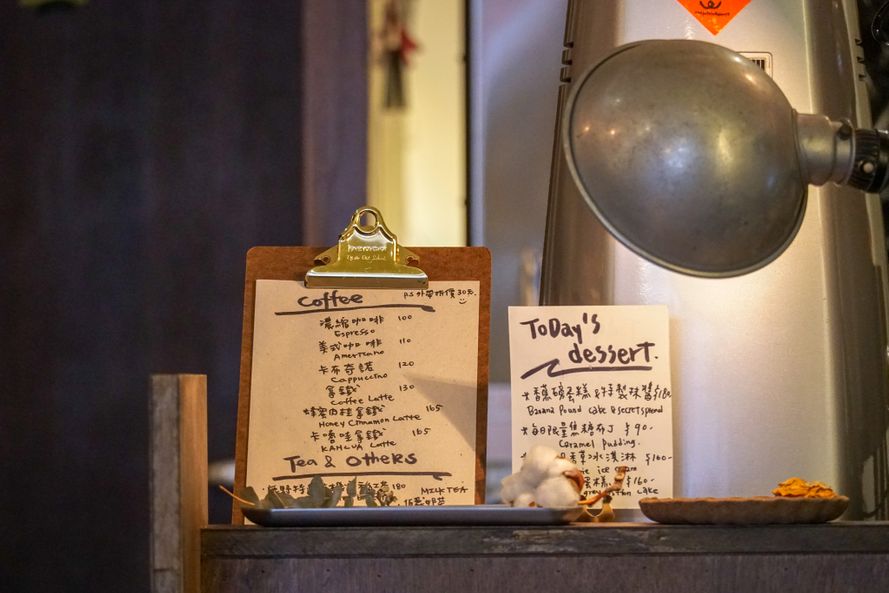 Coffee
P.S 外帶折價30元.
濃縮咖啡 100
Espresso
美式咖啡 110
Americano
卡布奇諾 120
Cappuccino
拿鐵 130
Coffee Latte
蜂蜜肉桂拿鐵 165
Honey Cinnamon Latte
卡嚕哇拿鐵 165
KAHLUA Latte
Tea & Others
180 MILK TEA
Today's
dessert.
香蕉磅蛋糕 &特製抹醬 $180
Banana Pound cake & secret spread
每日限量焦糖布丁 $90-
Caramel Pudding.
草冰淇淋 $160-
ice cream
蛋糕 $160-
cake